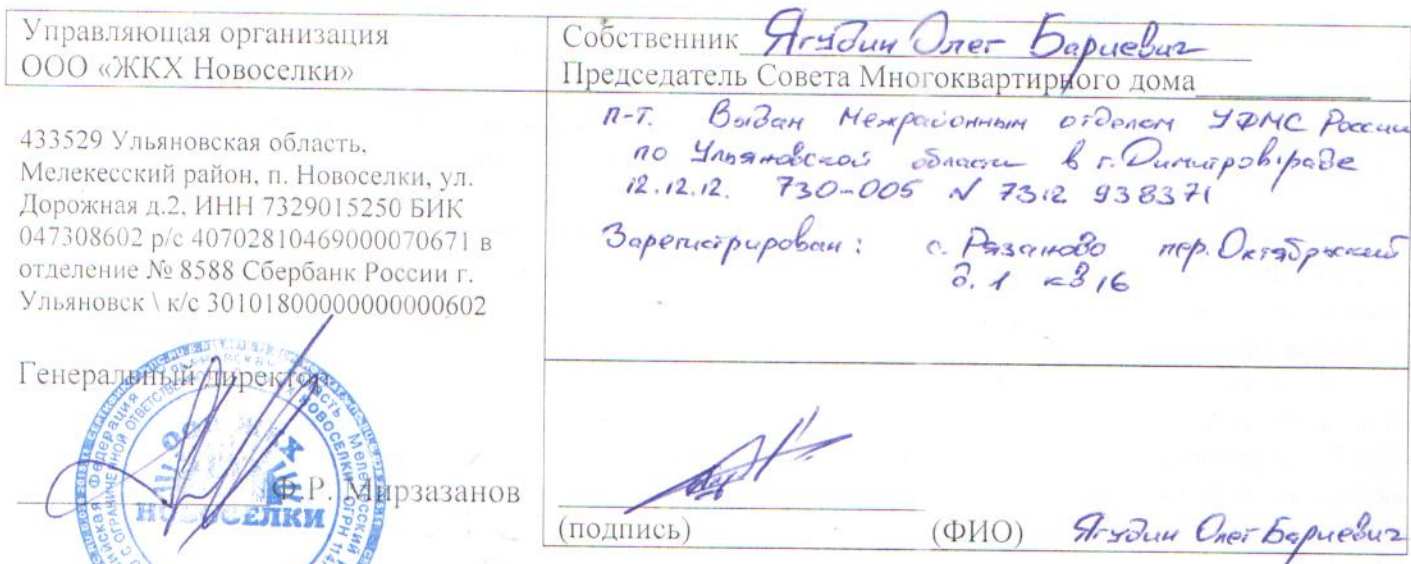 Управляющая организация
ООО «ЖКХ Новоселки»
433529 Ульяновская область,
Мелекесский район, п. Новоселки, ул.
Дорожная д.2, ИНН 7329015250 БИК
047308602 р/с 40702810469000070671 в
отделение № 8588 Сбербанк России г.
Ульяновск \ к/с 30101800000000000602
Генеральный директор
Ф.Р. Мирзазанов
НОВОСЕЛКИ
Собственник Ягудин Олег Бариевич
Председатель Совета Многоквартирного дома
п-т. Выдан Межрайонным отделом УФМС России
по Ульяновской области в г. Димитровграде
12.12.12. 730-005 № 7312 938371
Зарегистрирован: с. Рязаново пер. Октябрьский
д. 1 кв 16
(подпись) (ФИО) Ягудин Олег Бариевич